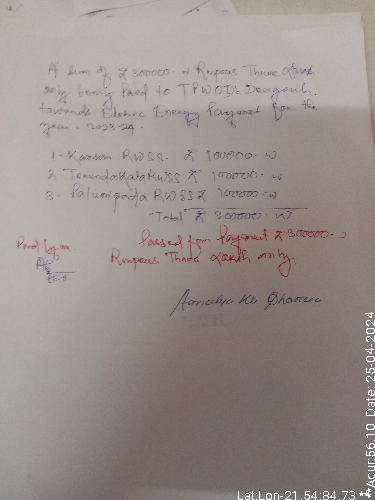 A sum of ₹ 300000.00 Rupees Three Lakh
only being Paid to TPWODL Deogarh.
towards Electric Energy Payment for the
year. 2023-24.
1- RWSS. ₹ 100000.00
2- RWSS ₹ 100000.00
3- RWSS ₹ 100000.00
Total ₹ 300000.00
Passed for Payment ₹ 300000.00
Rupees Three Lakh only.
Paid by me
Lat:Lon-21.54:84.73 **Acur:56.10 Date: 25-04-2024